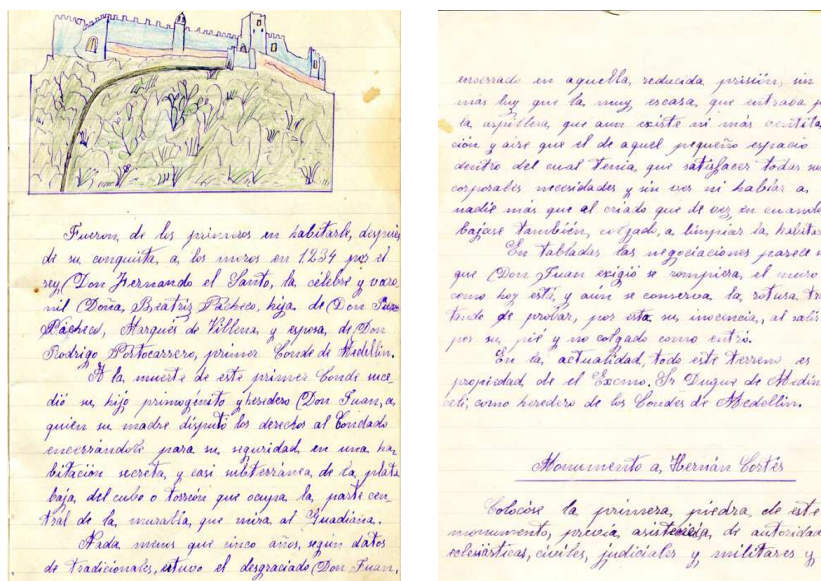 Fueron de los primeros en habitarle, después
de su conquista a los moros en 1234 por el
rey Don Fernando el Santo, la célebre y varo
nil Doña Beatriz Pacheco, hija de Don Juan
Pacheco, Marqués de Villena y esposa de Don
Rodrigo Portocarrero, primer Conde de Medellín.
A la muerte de este primer Conde suce
dió su hijo primogénito y heredero Don Juan, a
quien su madre disputó los derechos al Condado
encerrándole para su seguridad en una ha
bitación secreta y casi subterránea de la planta
baja del cubo o torreón que ocupa la parte cen
tral de la muralla que mira al Guadiana.
Nada menos que cinco años, según datos
de tradicionales, estuvo el desgraciado Don Juan,
encerrado en aquella reducida prisión, sin
más luz que la muy escasa que entraba p
la aspillera que aun existe ni más ventila
ción y aire que el de aquel pequeño espacio
dentro del cual tenía que satisfacer todas su
corporales necesidades y sin ver ni hablar a
nadie más que al criado que de vez en cuando
bajase también colgado a limpiar la habita
En tabladas las negociaciones parece
que Don Juan exigió se rompiera el muro
como hoy está y aún se conserva la rotura tra
tando de probar, por esta su inocencia, al salir
por su pie y no colgado como entró.
En la actualidad todo este terreno es
propiedad de el Excmo. Sr Duque de Medin
celi, como heredero de los Condes de Medellín.
Monumento a Hernán Cortés
Colocóse la primera piedra de este
monumento, previa asistencia de autoridad
eclesiásticas, civiles, judiciales y militares y